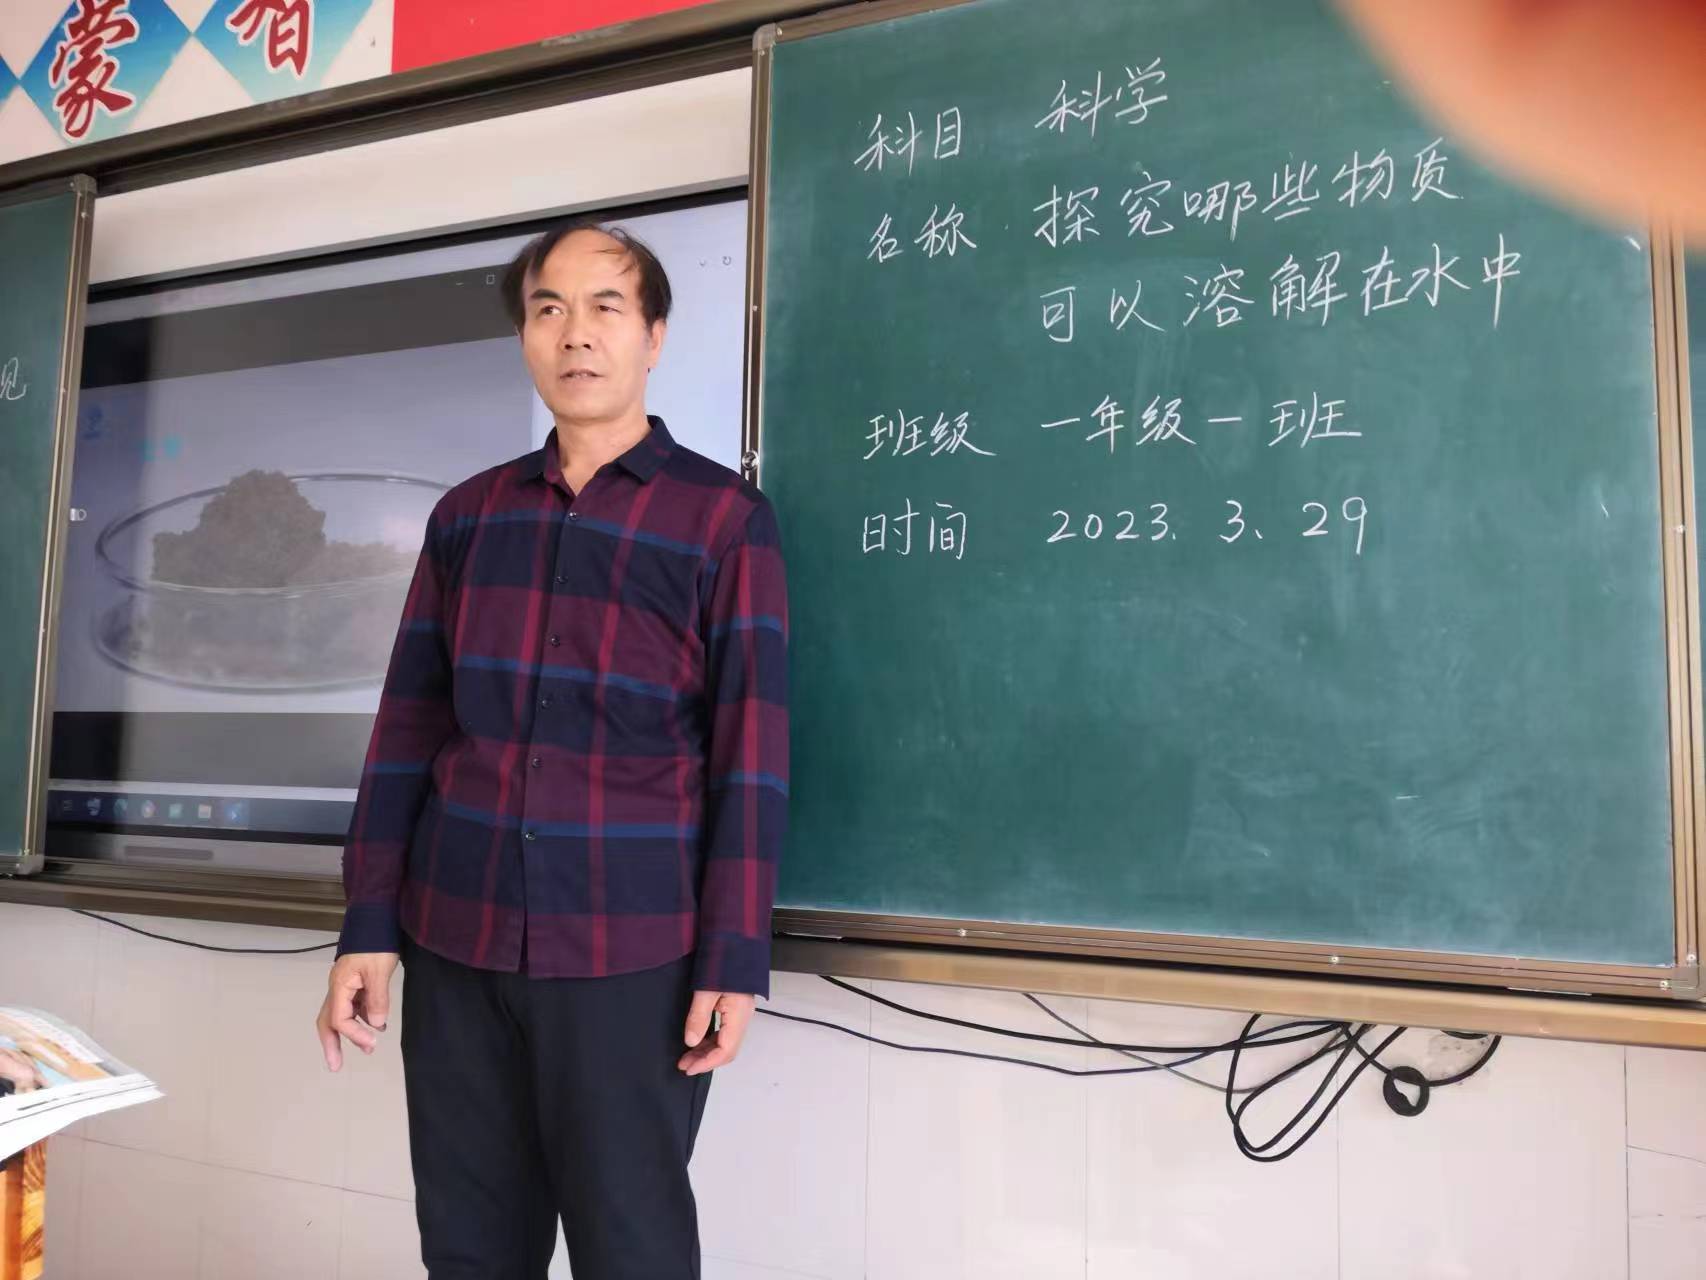 蒙
见
科目 科学
名称 探究哪些物质
可以溶解在水中
班级 一年级一班
时间 2023.3、29